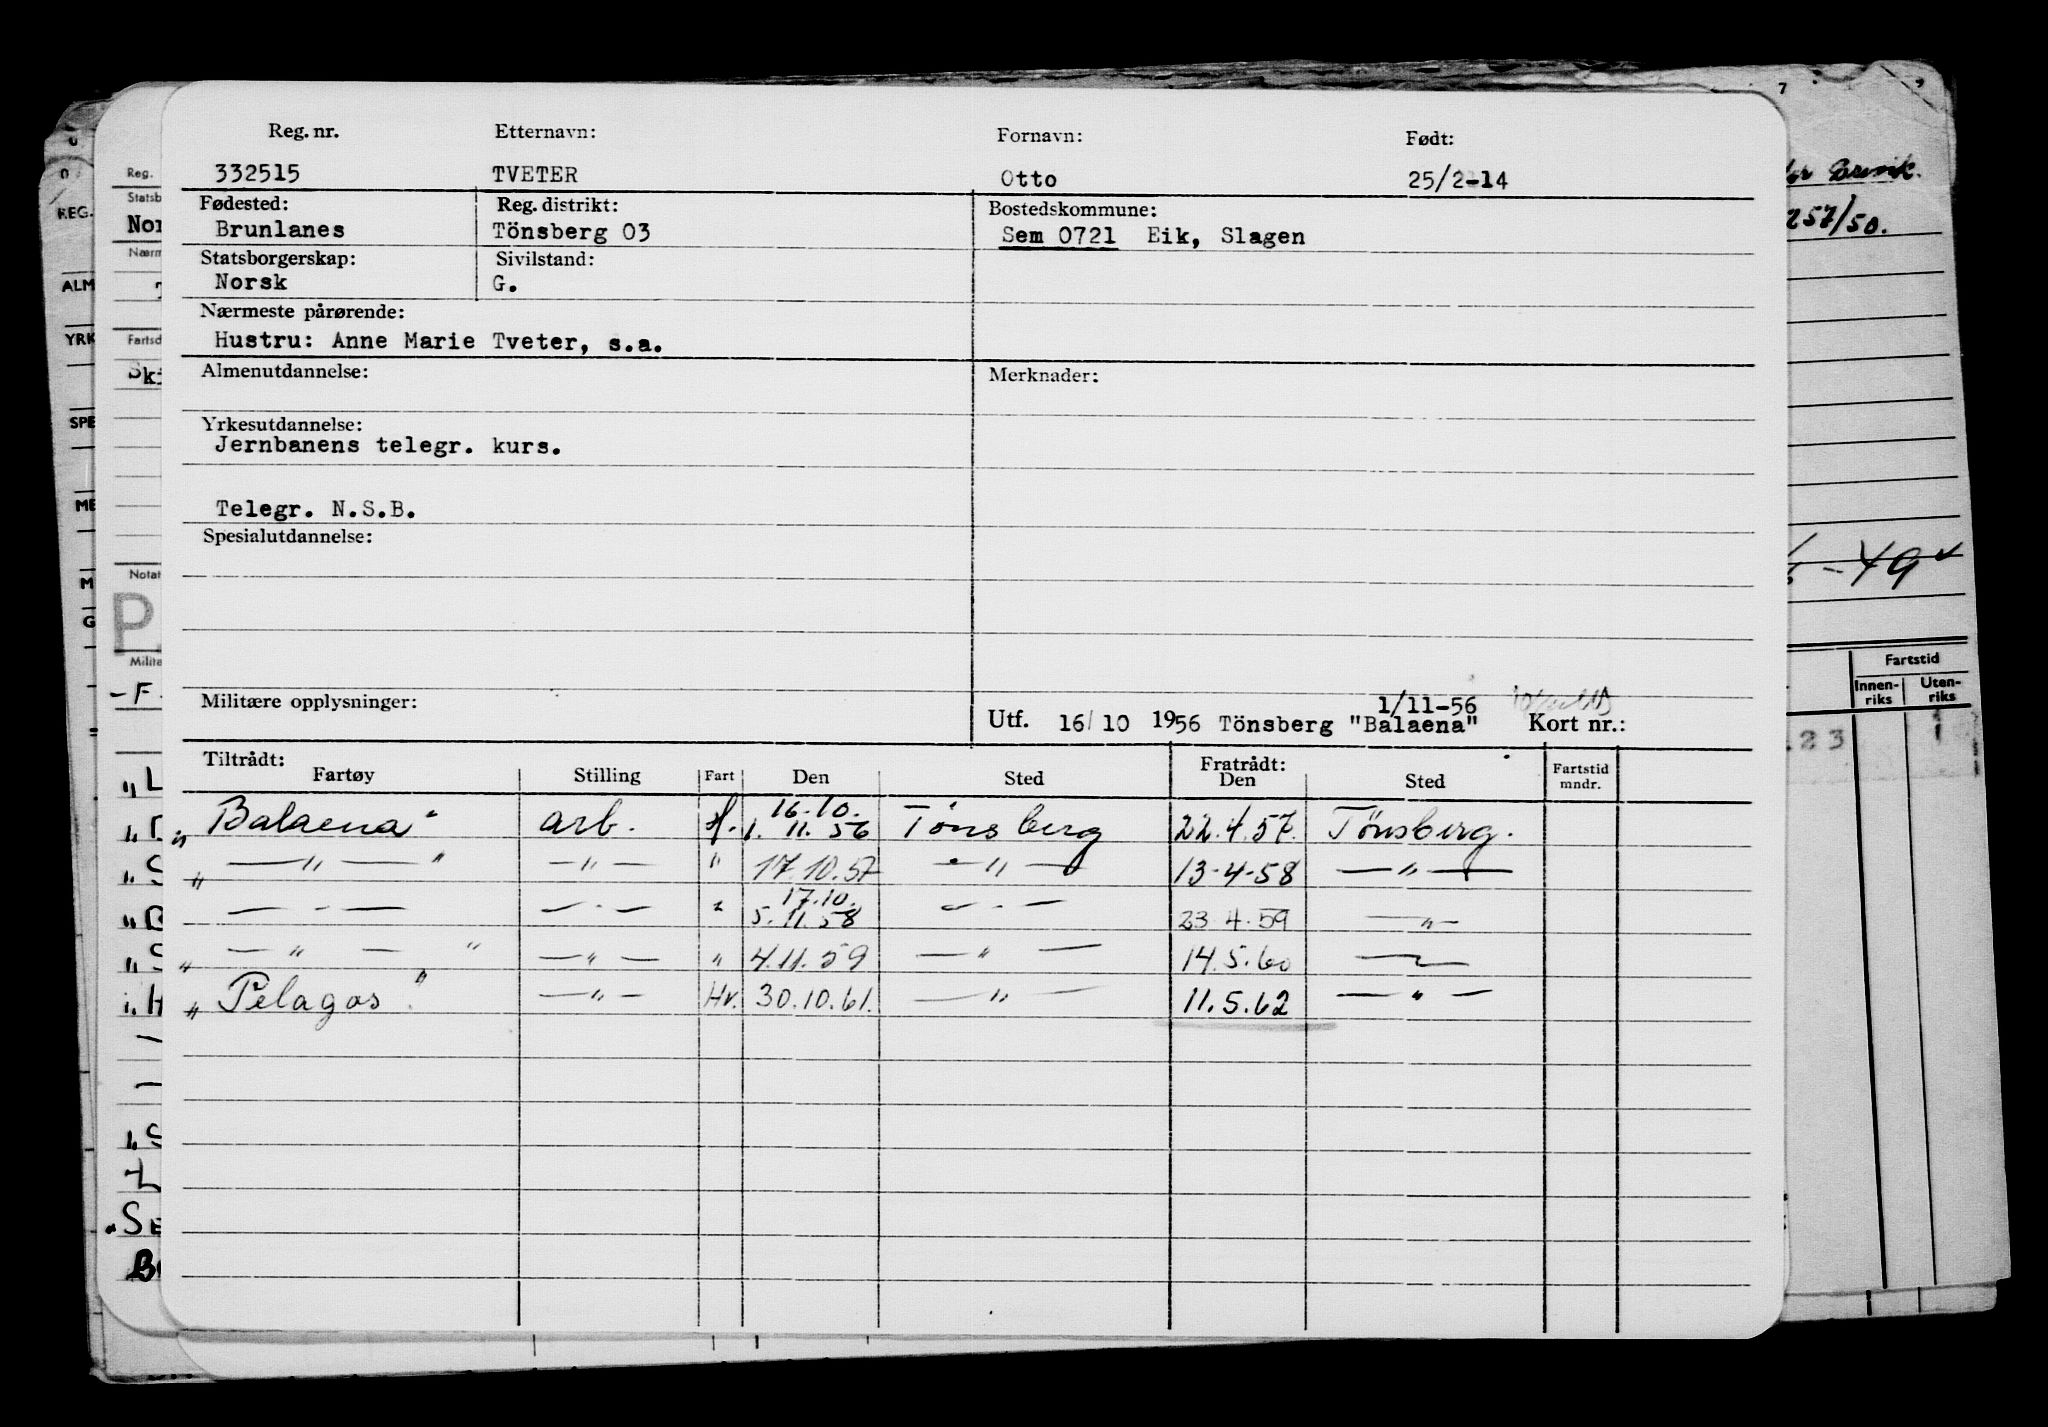 Reg. nr. Etternavn: Fornavn: Født:
332515 TVETER Otto 25/2-14
Fødested: Reg. distrikt: Bostedskommune:
Brunlanes Tönsberg 03 Sem 0721 Eik, Slagen
Statsborgerskap: Sivilstand:
Norsk G.
Nærmeste pårørende:
Hustru: Anne Marie Tveter, s.a.
Almenutdannelse: Merknader:
Yrkesutdannelse:
Jernbanens telegr. kurs.
Telegr. N.S.B.
Spesialutdannelse:
Militære opplysninger:
1/11-56
Utf. 16/10 1956 Tönsberg "Balaena" Kort nr.:
Tiltrådt: Fratrådt:
Fartøy Stilling Fart Den Sted Den Sted Fartstid mndr.
16.10.
"Balaena" arb. H. 1. 11. 56 Tønsberg 22.4.57. Tønsberg.
" — " — " — " — " 17.10.57 — " — 13-4-58 — " —
17.10.
— " — — " — " 5.11.58 — " — 23.4.59 — " —
" — " — " — " — " 4.11.59 — " — 14.5.60 — " —
"Pelagos". — " — Hv. 30.10.61. — " — 11.5.62 — " —
7
Brevik.
257/50.
49
Fartstid
Innen-riks Uten-riks
23 1
REG.
ALM
YRK
SPE
ME
M
G
Reg.
Statsb
Nor
Nærm
Fartsd
Ski
Notat
P
Milita
-F
"L
"S
"B
"S
"H
"S
"SE